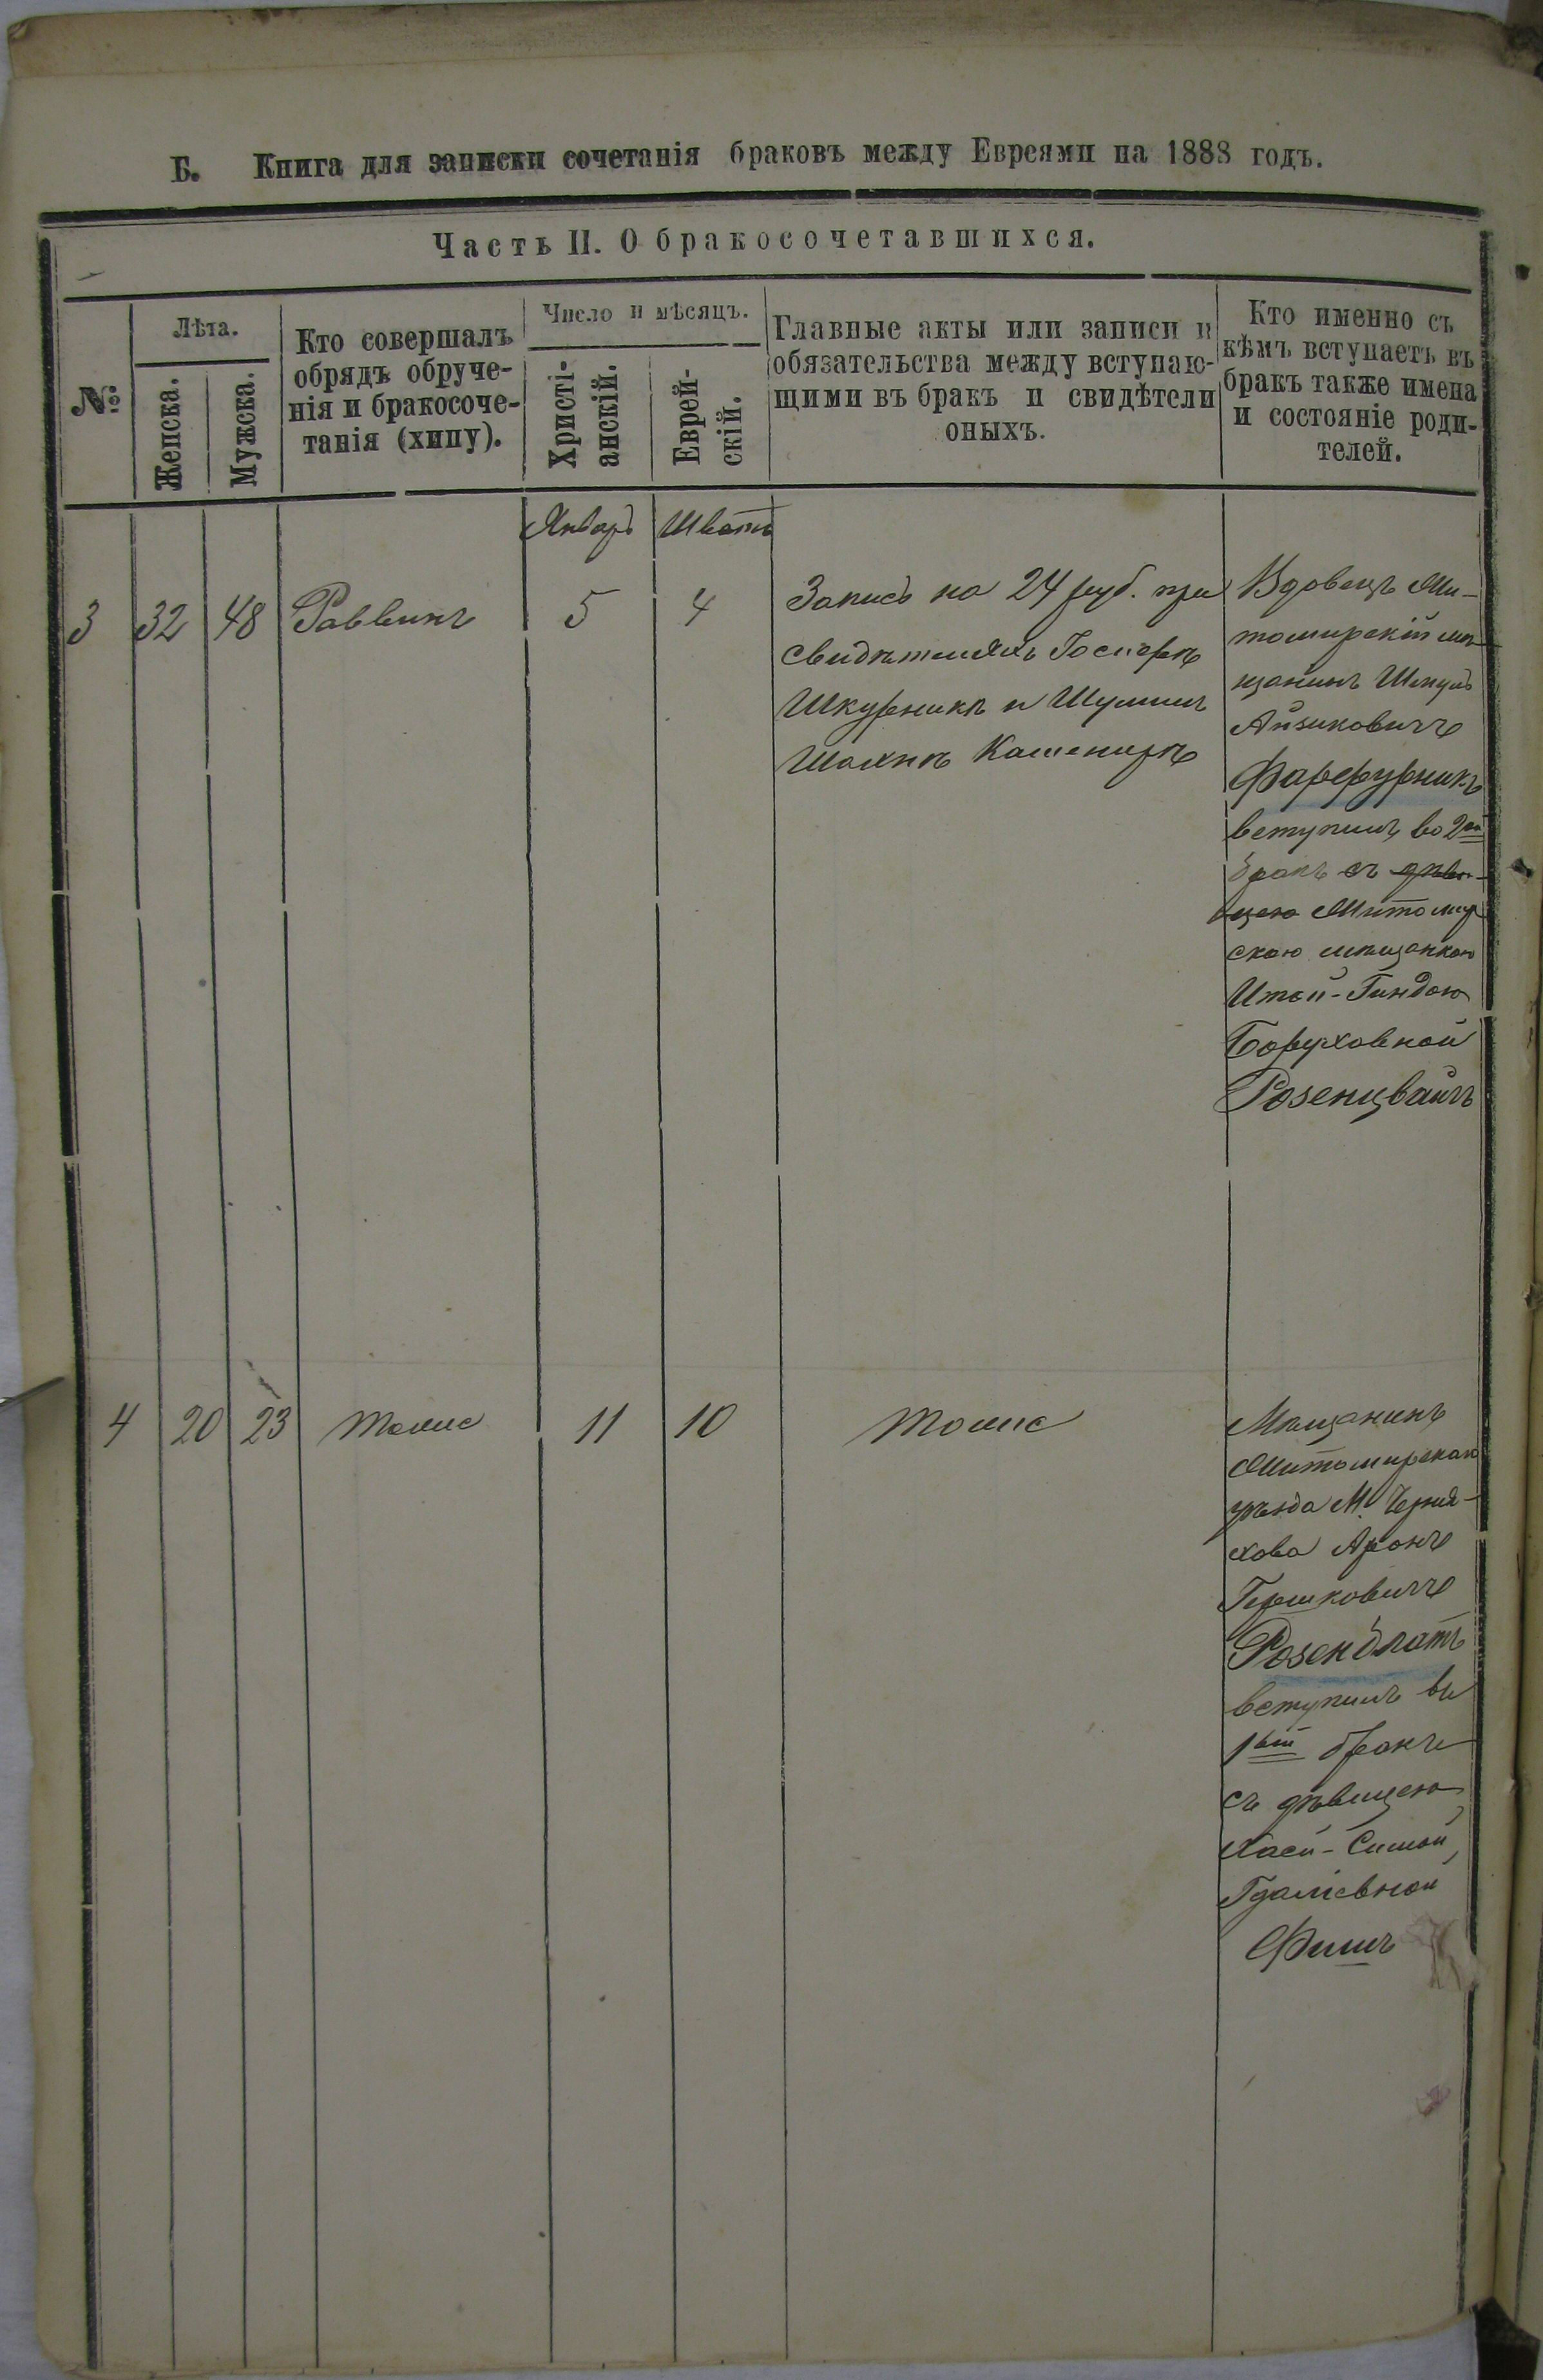 Б. Книга для записки сочетанія браковъ между Евреями на 1888 годъ.
Часть II. О бракосочетавшихся.
№
Лѣта.
Женска.
Мужска.
Кто совершалъ
обрядъ обруче-
нія и бракосоче-
танія (хипу).
Число и мѣсяцъ.
Христі-
анскій.
Еврей-
скій.
Главные акты или записи и
обязательства между вступаю-
щими въ бракъ и свидѣтели
оныхъ.
Кто именно съ
кѣмъ вступаетъ въ
бракъ также имена
и состояніе роди-
телей.
Январь Шватъ
3 32 48 Раввинъ 5 4
Запись на 24 руб. при
свидѣтеляхъ
Шкурникъ и Шулимъ
Камениръ
Вдовецъ Жи-
томирскій мѣ-
щанинъ Шмуль
Айзиковичъ
Фарфурникъ
вступилъ во 2ой
бракъ съ дѣви-
цею Житомир
скою мѣщанкою
Итой-Гиндою
Боруховной
Розенцвайгъ
4 20 23 тоже 11 10 тоже
Мѣщанинъ
Житомирскаго
уѣзда М. Черня-
хова Аронъ
Гершковичъ
Розенблатъ
вступилъ въ
1вый бракъ
съ дѣвицею
Хаей-Симой
Гдаліевной
Фишъ